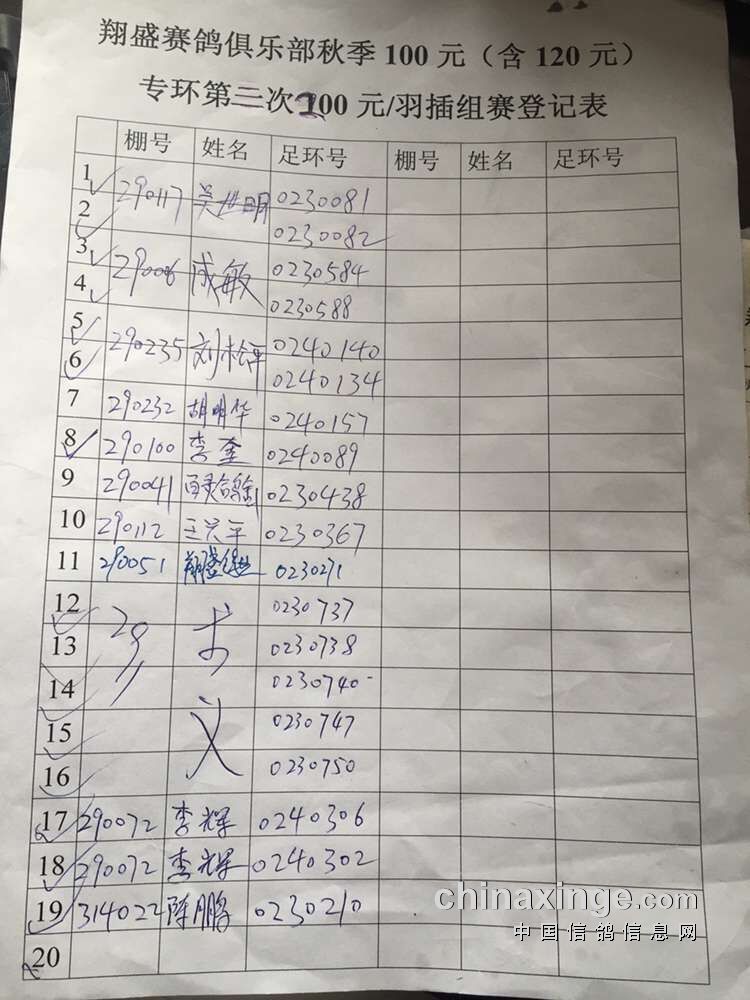 翔盛赛鸽俱乐部秋季100元（含120元）
专环第二次200元/羽插组赛登记表
棚号 姓名 足环号 棚号 姓名 足环号
1 290117 吴世明 0230081
2 0230082
3 29006 成敏 0230584
4 0230588
5 290235 刘松平 0240140
6 0240134
7 290232 胡明华 0240157
8 290100 李奎 0240089
9 290041 0230438
10 290112 王兴平 0230367
11 290051 翔盛 0230271
12 0230737
13 0230738
14 0230740
15 0230747
16 0230750
17 290072 李辉 0240306
18 290072 李辉 0240302
19 314022 陈鹏 0230210
20
chinaxinge.com
中国信鸽信息网